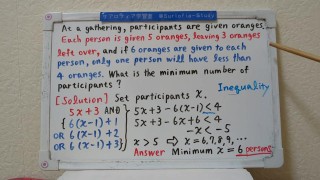 At a gathering, participants are given oranges.
Each person is given 5 oranges, leaving 3 oranges
left over, and if 6 oranges are given to each
person, only one person will have less than
4 oranges. What is the minimum number of
participants?
Inequality
[Solution] Set participants x.
5x+3 AND
{ 6(x-1)+1
OR 6(x-1)+2
OR 6(x-1)+3 }
5x+3-6(x-1)<4
5x+3-6x+6<4
-x<-5
x>5 ⇨ x=6,7,8,9,...
Answer Minimum x=6 persons